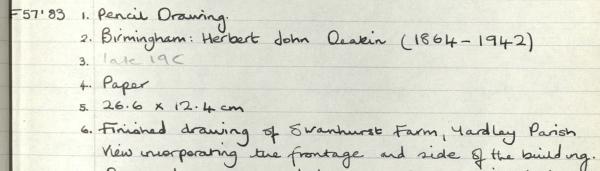 F57'83 1. Pencil Drawing.
2. Birmingham: Herbert John Deakin (1864-1942)
3. late 19C
4. Paper
5. 26.6 x 12.4 cm
6. Finished drawing of Swanhurst Farm, Yardley Parish
View incorporating the frontage and side of the building.